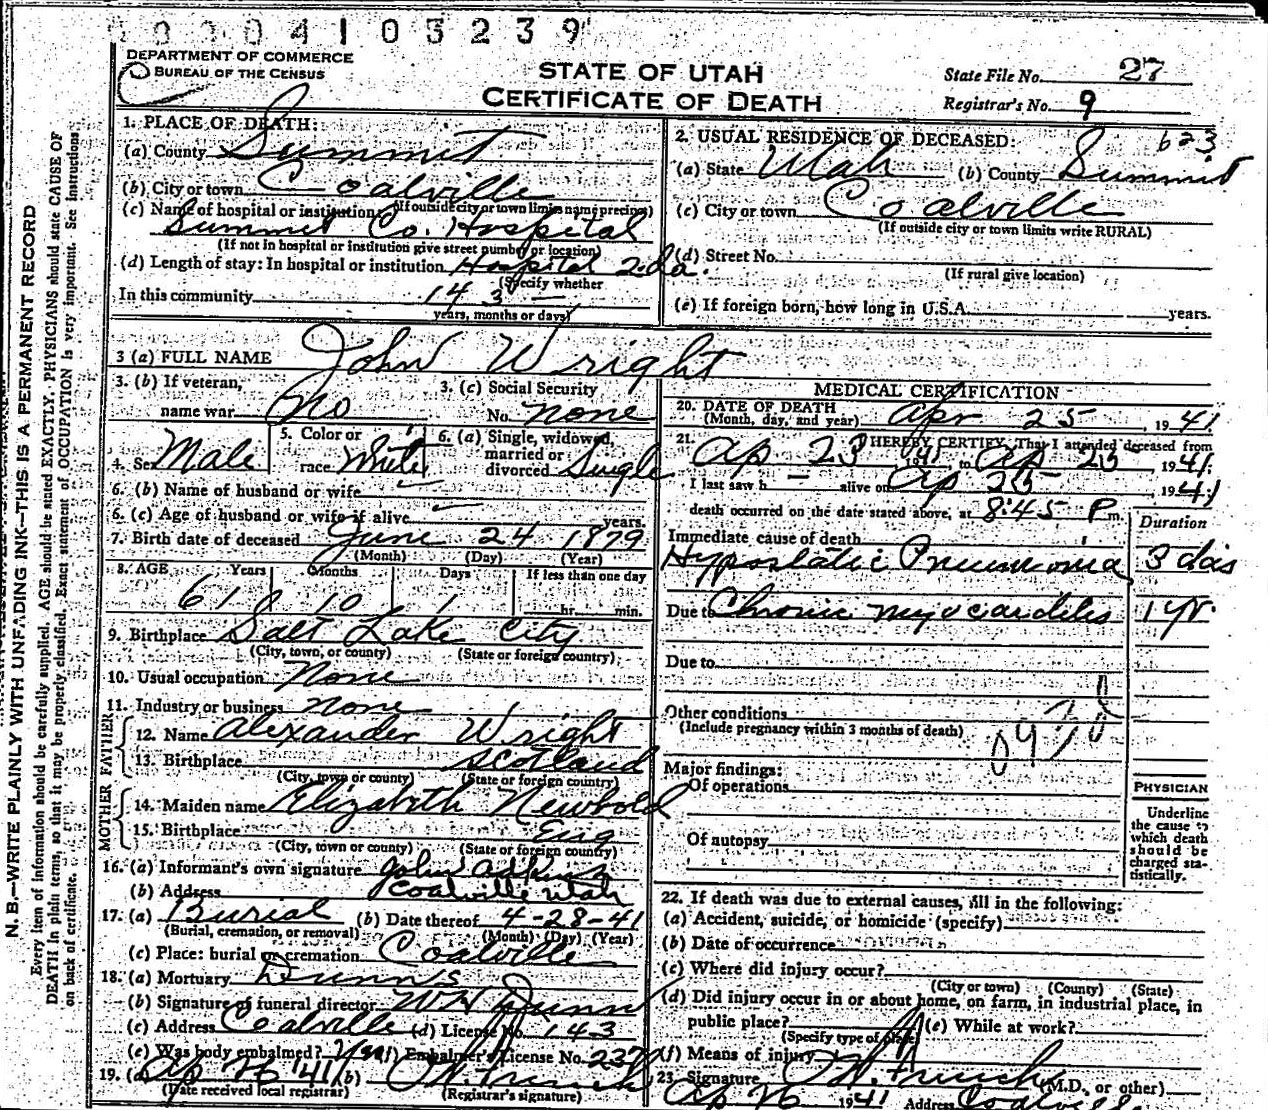 0004103239
DEPARTMENT OF COMMERCE
BUREAU OF THE CENSUS
STATE OF UTAH
CERTIFICATE OF DEATH
State File No. 27
Registrar's No. 9
1. PLACE OF DEATH:
(a) County Summit
(b) City or town Coalville
(If outside city or town limits name precinct)
(c) Name of hospital or institution:
Summit Co. Hospital
(If not in hospital or institution give street number or location)
(d) Length of stay: In hospital or institution Hospital 2 da.
(Specify whether
In this community 14 3 —
years, months or days)
623
2. USUAL RESIDENCE OF DECEASED:
(a) State Utah (b) County Summit
(c) City or town Coalville
(If outside city or town limits write RURAL)
(d) Street No.
(If rural give location)
(e) If foreign born, how long in U.S.A. years.
3 (a) FULL NAME John Wright
3. (b) If veteran, name war No
3. (c) Social Security No. none
4. Sex Male
5. Color or race White
6. (a) Single, widowed, married or divorced Single
6. (b) Name of husband or wife
6. (c) Age of husband or wife if alive years.
7. Birth date of deceased June 24 1879
(Month) (Day) (Year)
8. AGE Years Months Days If less than one day
61 10 1 hr. min.
9. Birthplace Salt Lake City
(City, town, or county) (State or foreign country)
10. Usual occupation None
11. Industry or business none
FATHER
12. Name Alexander Wright
13. Birthplace Scotland
(City, town or county) (State or foreign country)
MOTHER
14. Maiden name Elizabeth Newbold
15. Birthplace Eng
(City, town or county) (State or foreign country)
16. (a) Informant's own signature John Adkins
(b) Address Coalville Utah
17. (a) Burial (b) Date thereof 4-28-41
(Burial, cremation, or removal) (Month) (Day) (Year)
(c) Place: burial or cremation Coalville
18. (a) Mortuary Dunns
(b) Signature of funeral director Dunn
(c) Address Coalville (d) License No. 143
(e) Was body embalmed? Yes (f) Embalmer's License No.
19. (a) Ap 26 '41 (b)
(Date received local registrar) (Registrar's signature)
MEDICAL CERTIFICATION
20. DATE OF DEATH
(Month, day, and year) Apr 25, 1941
21. I HEREBY CERTIFY, That I attended deceased from
Ap 23 1941 to Ap 23, 1941.
I last saw h — alive on Ap 25 1941
death occurred on the date stated above, at 8:45 P m.
Duration
Immediate cause of death
Hypostatic Pneumonia 3 das
Due to Chronic myocarditis 1 yr.
Due to
Other conditions
(Include pregnancy within 3 months of death)
Major findings:
Of operations
Of autopsy
PHYSICIAN
Underline
the cause to
which death
should be
charged sta-
tistically.
22. If death was due to external causes, fill in the following:
(a) Accident, suicide, or homicide (specify)
(b) Date of occurrence
(c) Where did injury occur?
(City or town) (County) (State)
(d) Did injury occur in or about home, on farm, in industrial place, in
public place? (e) While at work?
(Specify type of place)
(f) Means of injury
23. Signature (M.D. or other)
Ap 26 1941 Address Coalville
N.B.—WRITE PLAINLY WITH UNFADING INK—THIS IS A PERMANENT RECORD
Every item of information should be carefully supplied. AGE should be stated EXACTLY. PHYSICIANS should state CAUSE OF
DEATH in plain terms, so that it may be properly classified. Exact statement of OCCUPATION is very important. See instructions
on back of certificate.